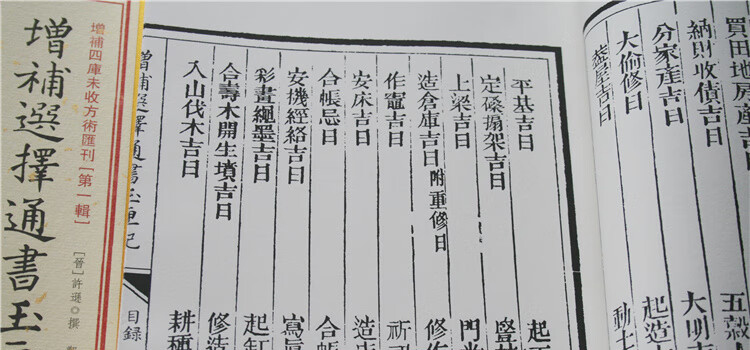 增補四庫未收方術匯刊[第一輯]
增補選擇通書玉
[晉]許遜◎撰
買田地房產吉日
五穀
納財收債吉日
大明
分家產吉日
起造
大偷修日
動土
蓋屋吉日
平基吉日
起
定磉搧架吉日
豎
上梁吉日
門光
造倉庫吉日附重修日
修作
作竈吉日
祈
安床吉日
造
合帳忌日
合帳
安機經絡吉日
寫真
彩畫繩墨吉日
起缸
合壽木開生墳吉日
修造
入山伐木吉日
耕種
增補選擇通書玉匣記
目錄